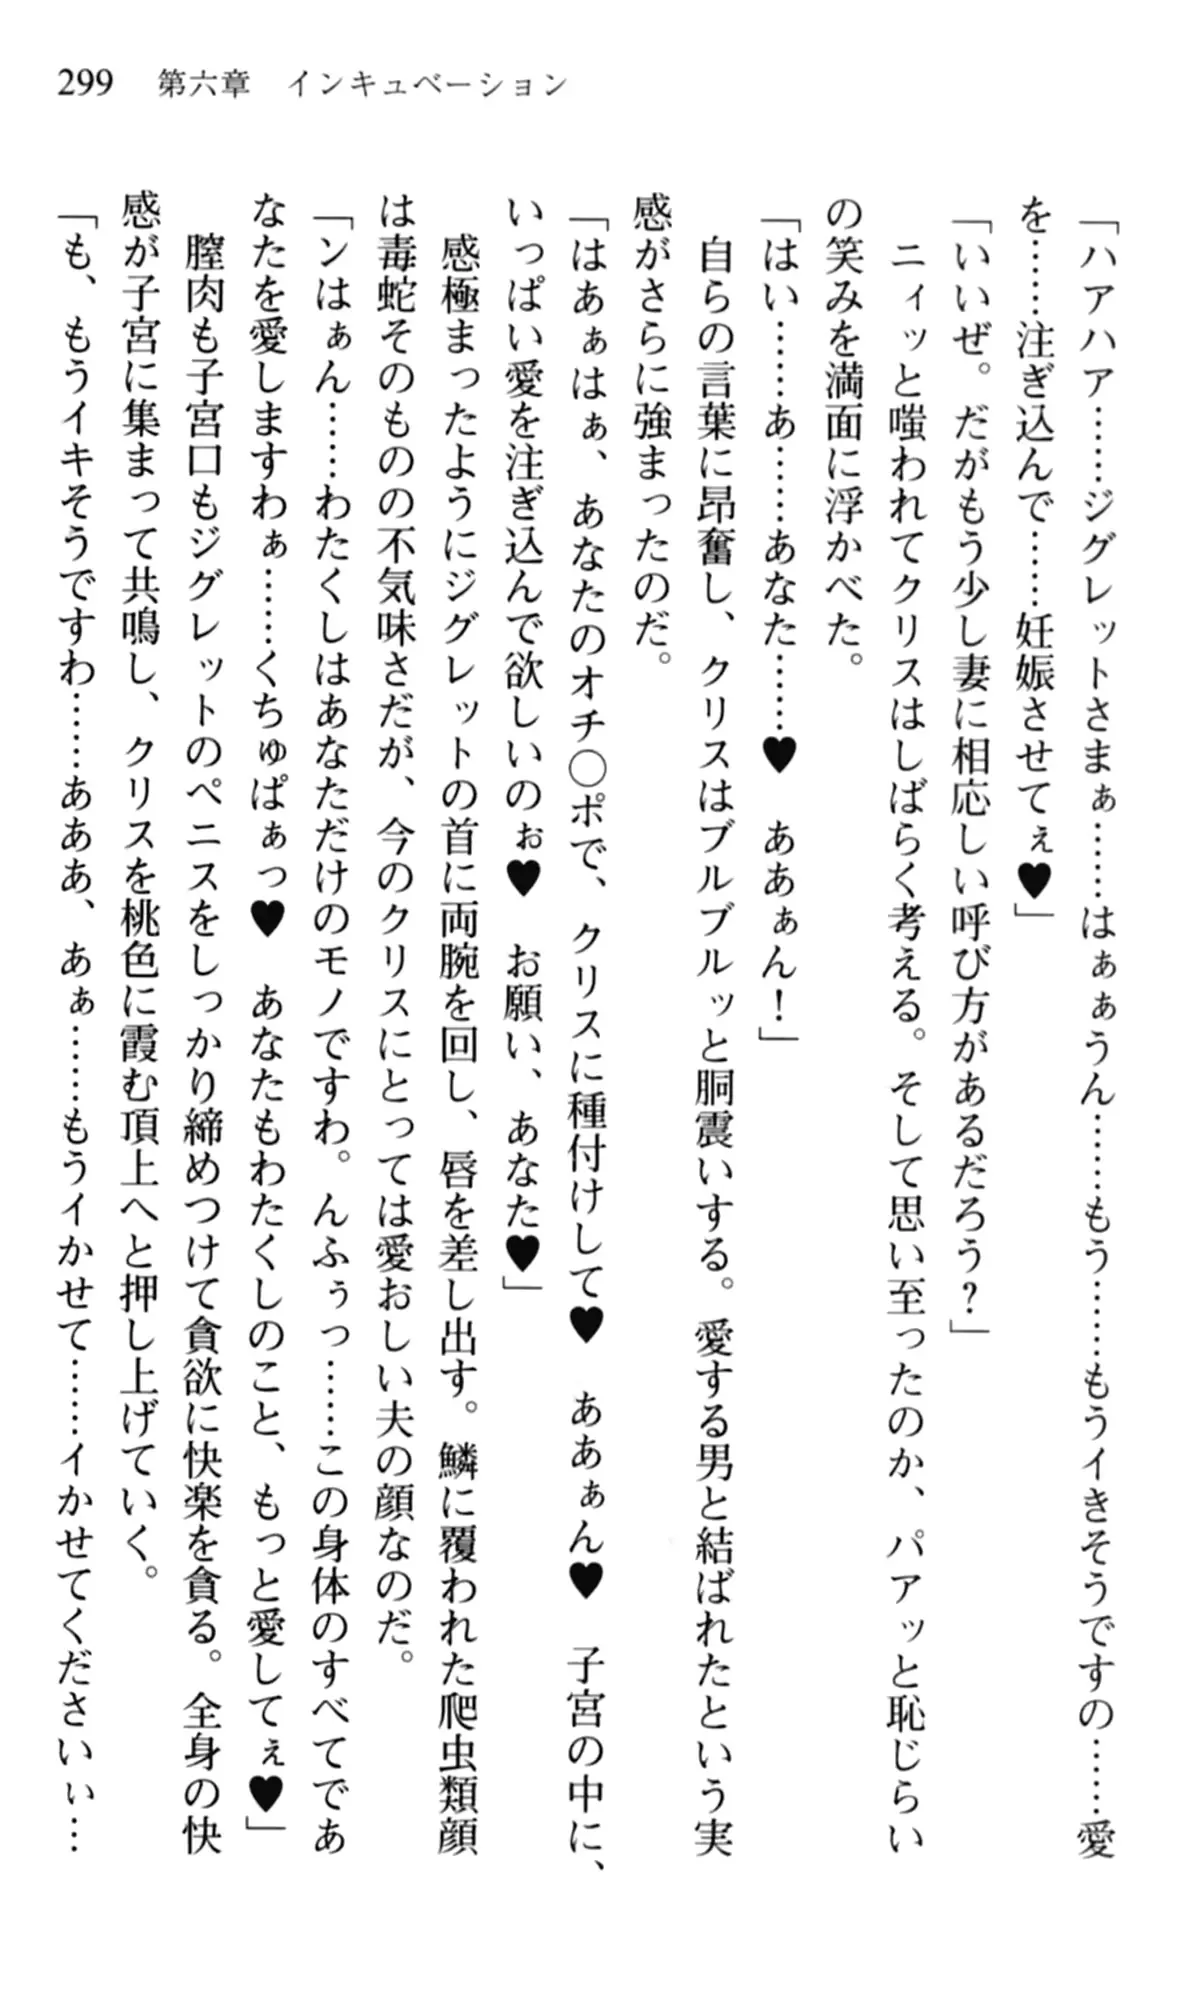 299 第六章 インキュベーション
「ハアハア……ジグレットさまぁ……はぁぁうん……もう……もうイきそうですの……愛
を……注ぎ込んで……妊娠させてぇ♥」
「いいぜ。だがもう少し妻に相応しい呼び方があるだろう?」
ニィッと嗤われてクリスはしばらく考える。そして思い至ったのか、パアッと恥じらい
の笑みを満面に浮かべた。
「はい……あ……あなた……♥ ああぁん!」
自らの言葉に昂奮し、クリスはブルブルッと胴震いする。愛する男と結ばれたという実
感がさらに強まったのだ。
「はあぁはぁ、あなたのオチ〇ポで、クリスに種付けして♥ ああぁん♥ 子宮の中に、
いっぱい愛を注ぎ込んで欲しいのぉ♥ お願い、あなた♥」
感極まったようにジグレットの首に両腕を回し、唇を差し出す。鱗に覆われた爬虫類顔
は毒蛇そのものの不気味さだが、今のクリスにとっては愛おしい夫の顔なのだ。
「ンはぁん……わたくしはあなただけのモノですわ。んふぅっ……この身体のすべてであ
なたを愛しますわぁ……くちゅぱぁっ♥ あなたもわたくしのこと、もっと愛してぇ♥」
膣肉も子宮口もジグレットのペニスをしっかり締めつけて貪欲に快楽を貪る。全身の快
感が子宮に集まって共鳴し、クリスを桃色に霞む頂上へと押し上げていく。
「も、もうイキそうですわ……あああ、あぁ……もうイかせて……イかせてくださいぃ…